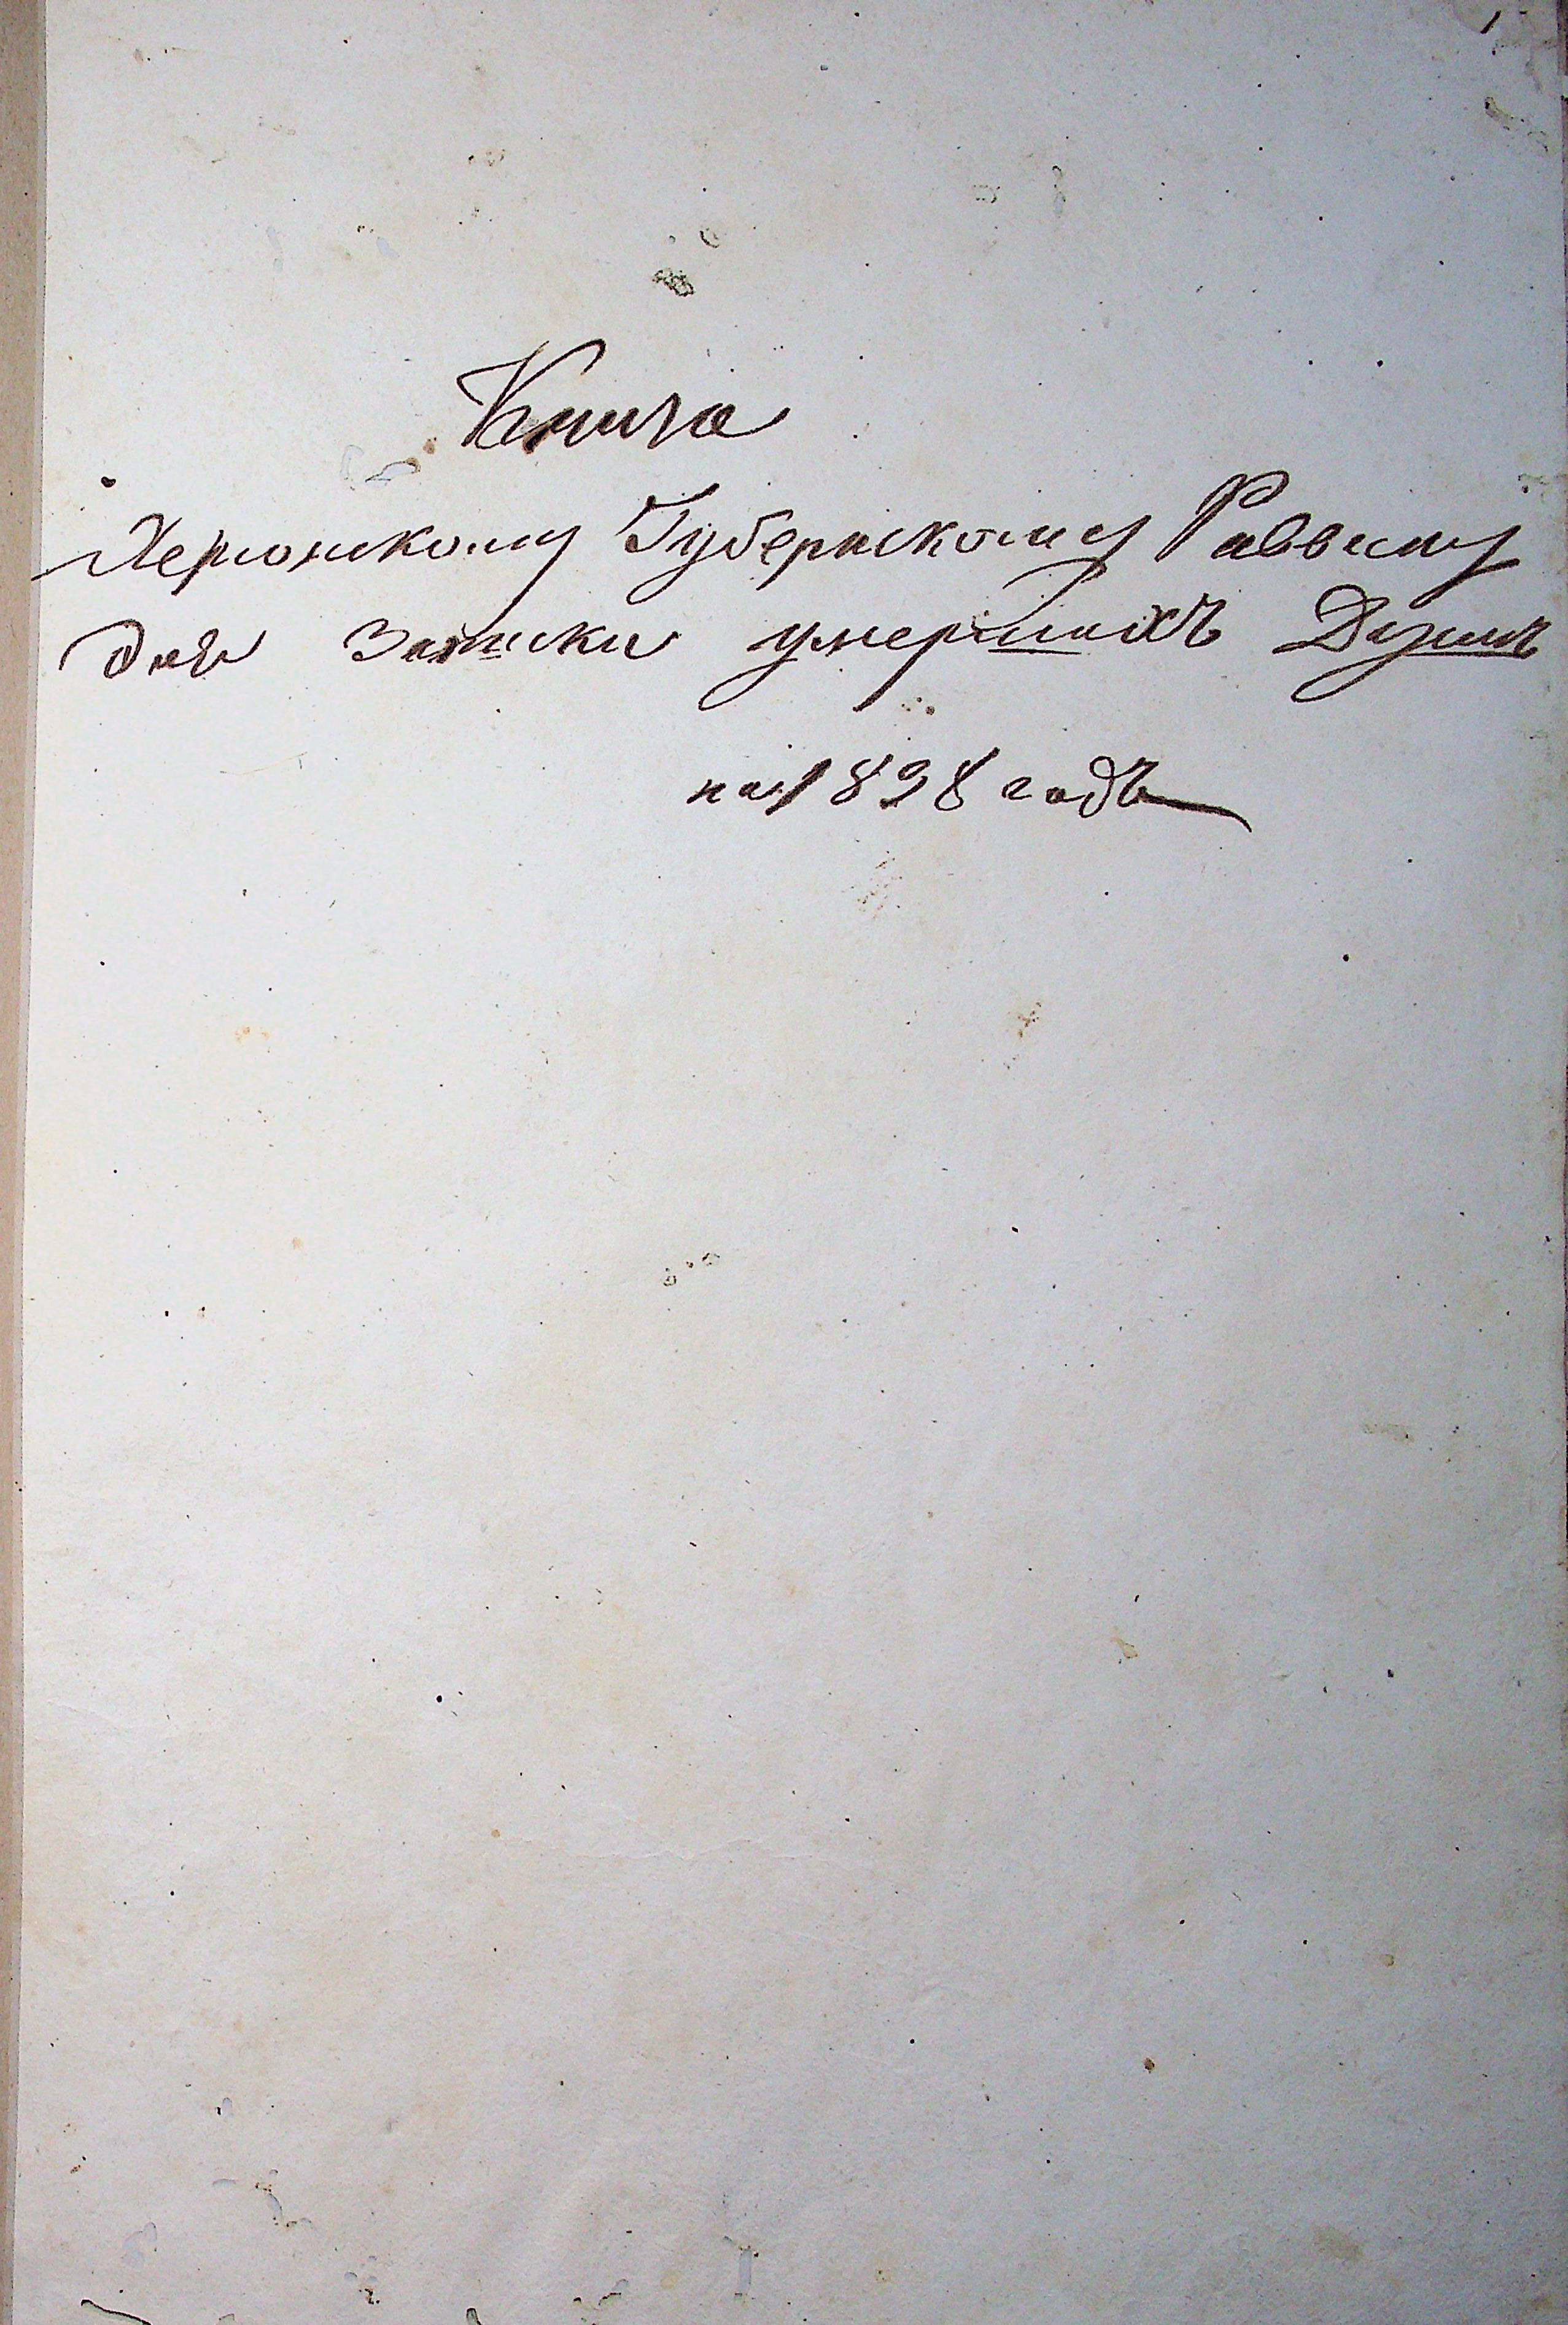 1
Книга
Херсонскому Губернскому Раввину
для записки умершихъ Душъ
на 1898 годъ